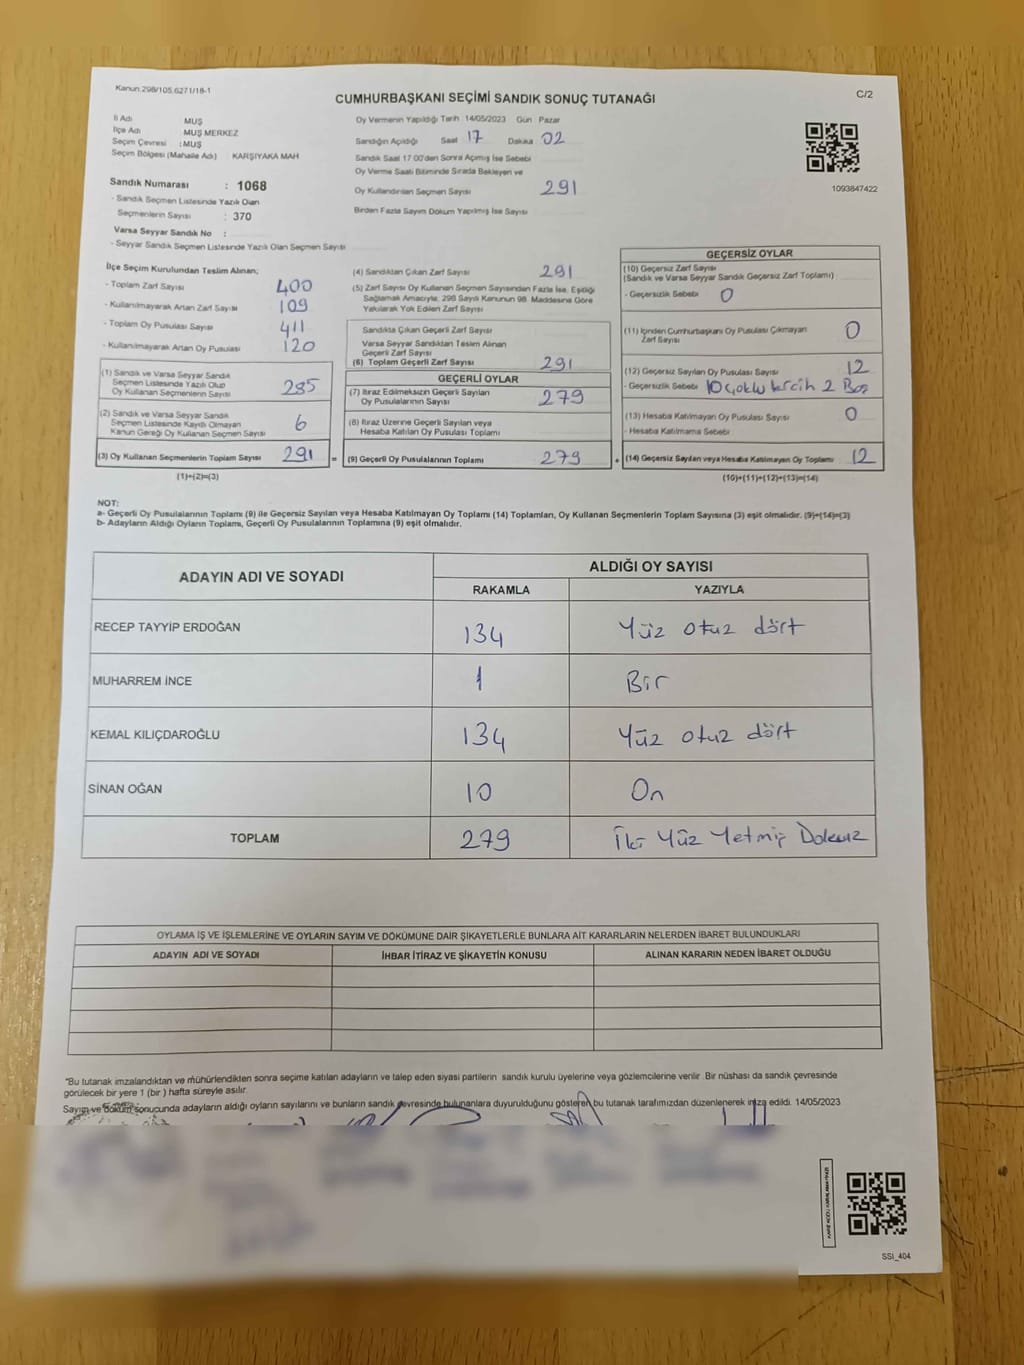 Kanun.298/105.6271/18-1
CUMHURBAŞKANI SEÇİMİ SANDIK SONUÇ TUTANAĞI
C/2
İl Adı MUŞ
İlçe Adı MUŞ MERKEZ
Seçim Çevresi : MUŞ
Seçim Bölgesi (Mahalle Adı) : KARŞIYAKA MAH
Sandık Numarası : 1068
- Sandık Seçmen Listesinde Yazılı Olan
Seçmenlerin Sayısı : 370
Varsa Seyyar Sandık No :
- Seyyar Sandık Seçmen Listesinde Yazılı Olan Seçmen Sayısı
Oy Vermenin Yapıldığı Tarih 14/05/2023 Gün Pazar
Sandığın Açıldığı Saat 17 Dakika 02
Sandık Saat 17 00'den Sonra Açımış İse Sebebi
Oy Verme Saati Bitiminde Sırada Bekleyen ve
Oy Kullandırılan Seçmen Sayısı 291
Birden Fazla Sayım Döküm Yapılmış İse Sayısı
1093847422
İlçe Seçim Kurulundan Teslim Alınan;
- Toplam Zarf Sayısı 400
- Kullanılmayarak Artan Zarf Sayısı 109
- Toplam Oy Pusulası Sayısı 411
- Kullanılmayarak Artan Oy Pusulası 120
(1) Sandık ve Varsa Seyyar Sandık
Seçmen Listesinde Yazılı Olup
Oy Kullanan Seçmenlerin Sayısı 285
(2) Sandık ve Varsa Seyyar Sandık
Seçmen Listesinde Kayıtlı Olmayan
Kanun Gereği Oy Kullanan Seçmen Sayısı 6
(3) Oy Kullanan Seçmenlerin Toplam Sayısı 291 =
(1)+(2)=(3)
(4) Sandıktan Çıkan Zarf Sayısı 291
(5) Zarf Sayısı Oy Kullanan Seçmen Sayısından Fazla İse, Eşitliği
Sağlamak Amacıyla, 298 Sayılı Kanunun 98. Maddesine Göre
Yakılarak Yok Edilen Zarf Sayısı
Sandıkta Çıkan Geçerli Zarf Sayısı
Varsa Seyyar Sandıktan Teslim Alınan
Geçerli Zarf Sayısı
(6) Toplam Geçerli Zarf Sayısı 291
GEÇERLİ OYLAR
(7) İtiraz Edilmeksizin Geçerli Sayılan
Oy Pusulalarının Sayısı 279
(8) İtiraz Üzerine Geçerli Sayılan veya
Hesaba Katılan Oy Pusulası Toplamı
(9) Geçerli Oy Pusulalarının Toplamı 279 +
GEÇERSİZ OYLAR
(10) Geçersiz Zarf Sayısı
(Sandık ve Varsa Seyyar Sandık Geçersiz Zarf Toplamı)
- Geçersizlik Sebebi 0
(11) İçinden Cumhurbaşkanı Oy Pusulası Çıkmayan
Zarf Sayısı 0
(12) Geçersiz Sayılan Oy Pusulası Sayısı 12
- Geçersizlik Sebebi 10 çoklu tercih 2 Boş
(13) Hesaba Katılmayan Oy Pusulası Sayısı 0
- Hesaba Katılmama Sebebi
(14) Geçersiz Sayılan veya Hesaba Katılmayan Oy Toplamı 12
(10)+(11)+(12)+(13)=(14)
NOT:
a- Geçerli Oy Pusulalarının Toplamı (9) ile Geçersiz Sayılan veya Hesaba Katılmayan Oy Toplamı (14) Toplamları, Oy Kullanan Seçmenlerin Toplam Sayısına (3) eşit olmalıdır. (9)+(14)=(3)
b- Adayların Aldığı Oyların Toplamı, Geçerli Oy Pusulalarının Toplamına (9) eşit olmalıdır.
ADAYIN ADI VE SOYADI
ALDIĞI OY SAYISI
RAKAMLA YAZIYLA
RECEP TAYYİP ERDOĞAN 134 Yüz otuz dört
MUHARREM İNCE 1 Bir
KEMAL KILIÇDAROĞLU 134 Yüz otuz dört
SİNAN OĞAN 10 On
TOPLAM 279 İki Yüz Yetmiş Dokuz
OYLAMA İŞ VE İŞLEMLERİNE VE OYLARIN SAYIM VE DÖKÜMÜNE DAİR ŞİKAYETLERLE BUNLARA AİT KARARLARIN NELERDEN İBARET BULUNDUKLARI
ADAYIN ADI VE SOYADI İHBAR İTİRAZ VE ŞİKAYETİN KONUSU ALINAN KARARIN NEDEN İBARET OLDUĞU
"Bu tutanak imzalandıktan ve mühürlendikten sonra seçime katılan adayların ve talep eden siyasi partilerin sandık kurulu üyelerine veya gözlemcilerine verilir .Bir nüshası da sandık çevresinde
görülecek bir yere 1 (bir ) hafta süreyle asılır.
Sayım ve döküm sonucunda adayların aldığı oyların sayılarını ve bunların sandık çevresinde bulunanlara duyurulduğunu gösteren bu tutanak tarafımızdan düzenlenerek imza edildi. 14/05/2023
SSI_404